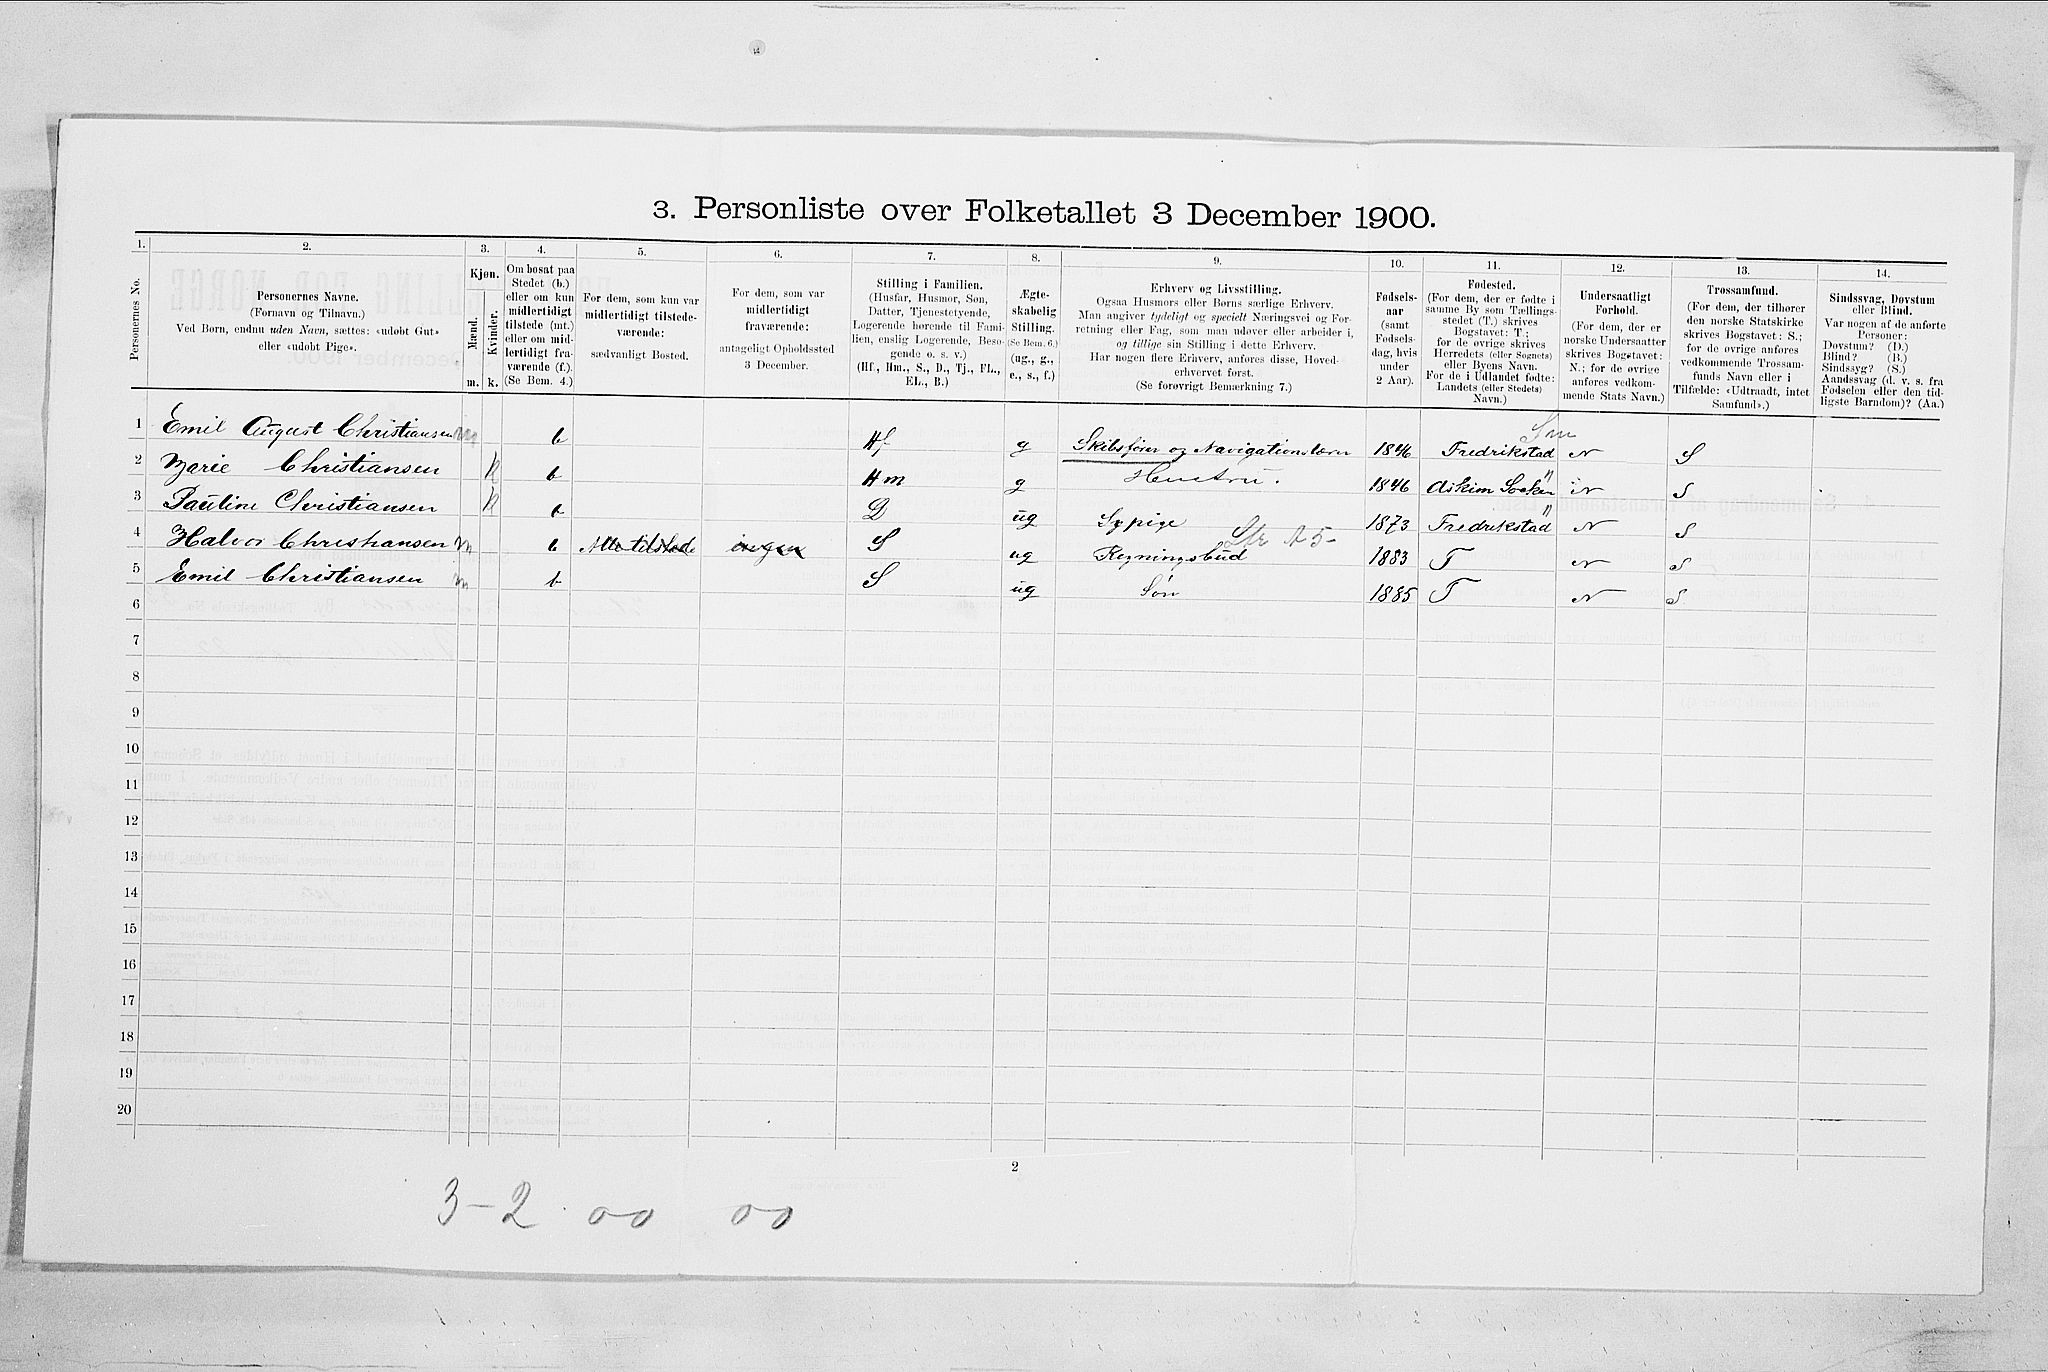 3. Personliste over Folketallet 3 December 1900.
1. 2. 3. 4. 5. 6. 7. 8. 9. 10. 11. 12. 13. 14.
Personernes No.
Personernes Navne.
(Fornavn og Tilnavn.)
Ved Børn, endnu uden Navn, sættes: «udøbt Gut»
eller «udøbt Pige».
Kjøn.
Mænd.
Kvinder.
m. k.
Om bosat paa
Stedet (b.)
eller om kun
midlertidigt
tilstede (mt.)
eller om mid-
lertidigt fra-
værende (f.).
(Se Bem. 4.)
For dem, som kun var
midlertidigt tilstede-
værende:
sædvanligt Bosted.
For dem, som var
midlertidigt
fraværende:
antageligt Opholdssted
3 December.
Stilling i Familien.
(Husfar, Husmor, Søn,
Datter, Tjenestetyende,
Logerende hørende til Fami-
lien, enslig Logerende, Besø-
gende o. s. v.)
(Hf., Hm., S., D., Tj., FL.,
EL., B.)
Ægte-
skabelig
Stilling.
(Se Bem. 6.)
(ug., g.,
e., s., f.)
Erhverv og Livsstilling.
Ogsaa Husmors eller Børns særlige Erhverv.
Man angiver tydeligt og specielt Næringsvei og For-
retning eller Fag, som man udøver eller arbeider i,
og tillige sin Stilling i dette Erhverv.
Har nogen flere Erhverv, anføres disse, Hoved-
erhvervet først.
(Se forøvrigt Bemærkning 7.)
Fødsels-
aar
(samt
Fødsels-
dag, hvis
under
2 Aar).
Fødested.
(For dem, der er fødte i
samme By som Tællings-
stedet (T.) skrives
Bogstavet: T.;
for de øvrige skrives
Herredets (eller Sognets)
eller Byens Navn.
For de i Udlandet fødte:
Landets (eller Stedets)
Navn.)
Undersaatligt
Forhold.
(For dem, der er
norske Undersaatter
skrives Bogstavet:
N.; for de øvrige
anføres vedkom-
mende Stats Navn.)
Trossamfund.
(For dem, der tilhører
den norske Statskirke
skrives Bogstavet: S.;
for de øvrige anføres
vedkommende Trossam-
funds Navn eller i
Tilfælde: «Udtraadt, intet
Samfund».)
Sindssvag, Døvstum
eller Blind.
Var nogen af de anførte
Personer:
Døvstum? (D.)
Blind? (B.)
Sindssyg? (S.)
Aandssvag (d. v. s. fra
Fødselen eller den tid-
ligste Barndom)? (Aa.)
1 Emil August Christiansen m b Hf g Skibsfører og Navigationslærer 1846 Fredrikstad N S
2 Marie Christiansen k b Hm g Hustru. 1846 Askim Sogn N S
3 Pauline Christiansen k b D ug Sypige 1873 Fredrikstad N S
4 Halvor Christiansen m b Alle tilstede ingen S ug Regningsbud 1883 T N S
5 Emil Christiansen m b S ug Søn 1885 T N S
6
7
8
9
10
11
12
13
14
15
16
17
18
19
20
2
3-2 00 00